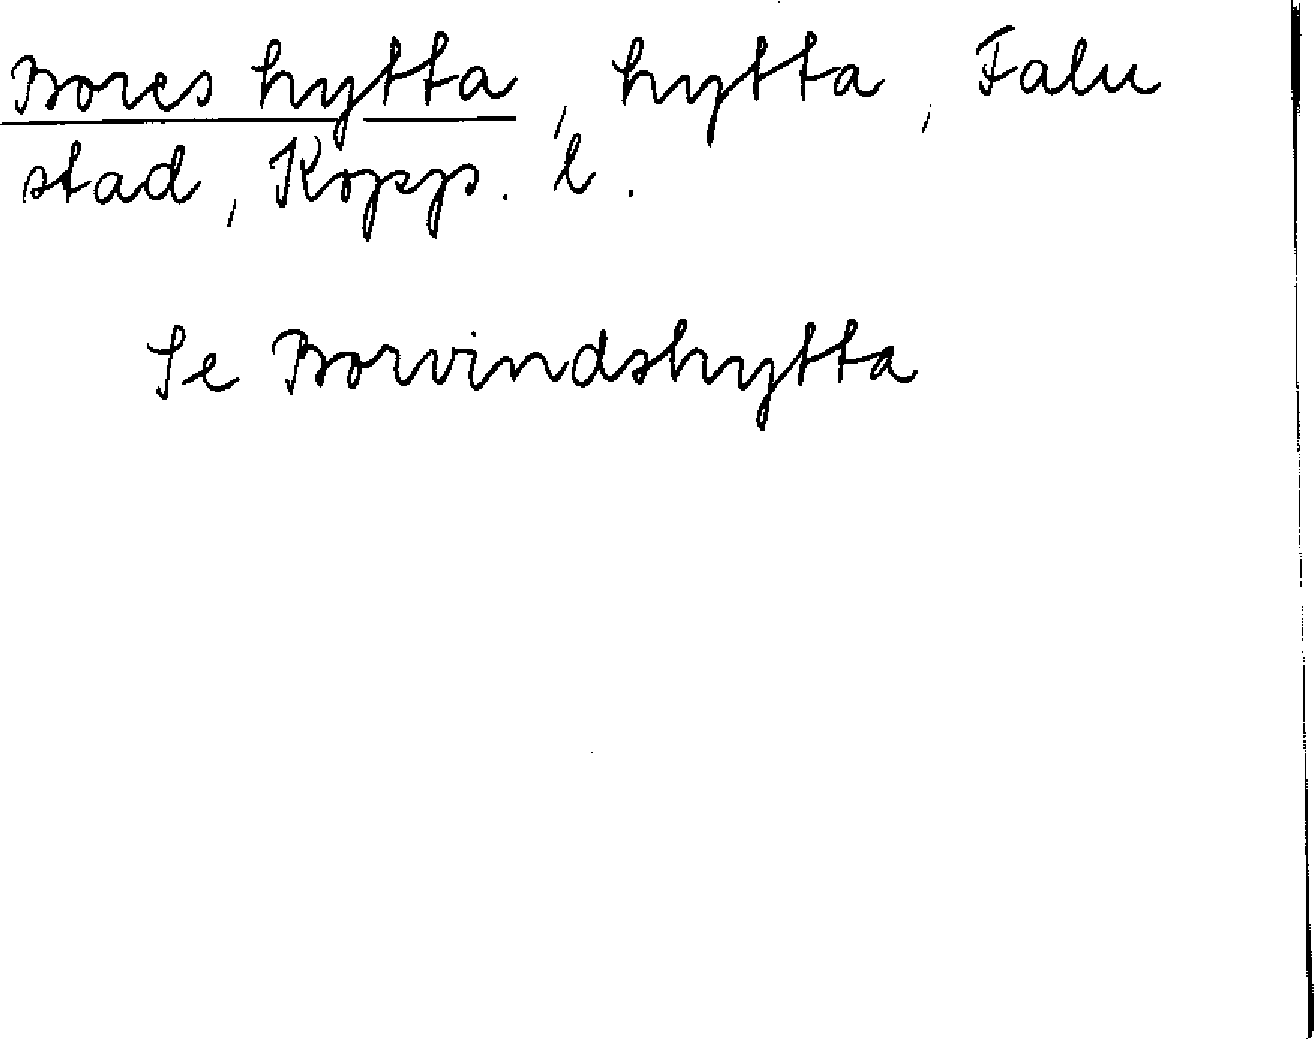 Bores hytta, hytta, Falu
stad, Kopp. l.
Se Borvindshytta